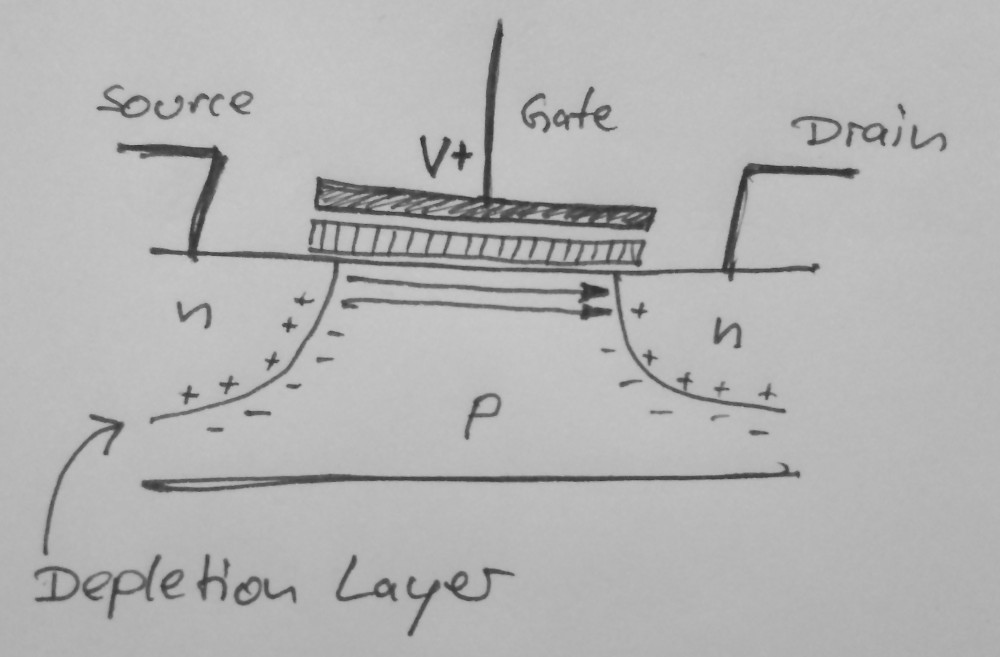 Source
Gate
Drain
V+
n
n
P
Depletion Layer